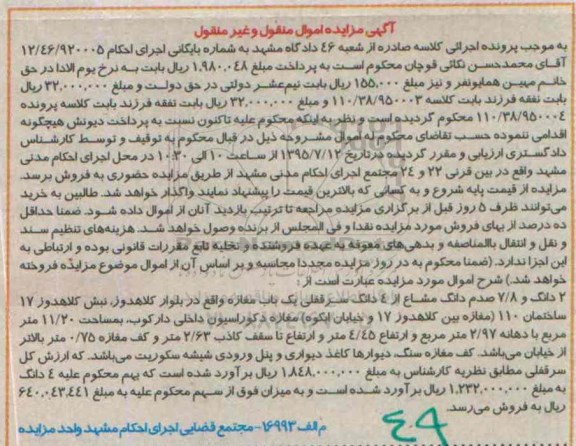 آگهی مزایده اموال منقول و غیر منقول
به موجب پرونده اجرائی کلاسه صادره از شعبه ٤٦ دادگاه مشهد به شماره بایگانی اجرای احکام ۱۲/٤٦/۹۲۰۰۰۵
آقای محمدحسن نکائی قوچان محکوم است به پرداخت مبلغ ۱.۹۸۰.۰٤۸ ریال بابت به نرخ یوم الادا در حق
خانم مهین همایونفر و نیز مبلغ ۱۵۵,۰۰۰ ریال بابت نیم‌عشر دولتی در حق دولت و مبلغ ۳۲,۰۰۰,۰۰۰ ریال
بابت نفقه فرزند بابت کلاسه ۱۱۰/۳۸/۹۵۰۰۰۳ و مبلغ ۳۲,۰۰۰,۰۰۰ ریال بابت نفقه فرزند بابت کلاسه پرونده
۱۱۰/۳۸/۹۵۰۰۰٤ محکوم گردیده است و نظر به اینکه محکوم علیه تاکنون نسبت به پرداخت دیونش هیچگونه
اقدامی ننموده حسب تقاضای محکوم له اموال مشروحه ذیل در قبال محکوم به توقیف و توسط کارشناس
دادگستری ارزیابی و مقرر گردیده در تاریخ ۱۳۹۵/۷/۱۲ از ساعت ۱۰ الی ۱۰:۳۰ در محل اجرای احکام مدنی
مشهد واقع در بین قرنی ۲۲ و ۲٤ مجتمع اجرای احکام مدنی مشهد از طریق مزایده حضوری به فروش برسد.
مزایده از قیمت پایه شروع و به کسانی که بالاترین قیمت را پیشنهاد نمایند واگذار خواهد شد. طالبین به خرید
می‌توانند ظرف ۵ روز قبل از برگزاری مزایده مراجعه تا ترتیب بازدید آنان از اموال داده شود. ضمنا حداقل
ده درصد از بهای فروش مورد مزایده نقدا و فی المجلس از برنده وصول خواهد شد. هزینه‌های تنظیم سند
و نقل و انتقال بالمناصفه و بدهی‌های معوقه به عهده فروشنده و تخلیه تابع مقررات قانونی بوده و ارتباطی به
این اجرا ندارد. (ضمنا محکوم به در روز مزایده مجددا محاسبه و بر اساس آن از اموال موضوع مزایده فروخته
خواهد شد.) شرح اموال مورد مزایده عبارت است از :
۲ دانگ و ۷/۸ صدم دانگ مشاع از ٤ دانگ سرقفلی یک باب مغازه واقع در بلوار کلاهدوز، نبش کلاهدوز ۱۷
ساختمان ۱۱۰ (مغازه بین کلاهدوز ۱۷ و خیابان ابکوه) مغازه دکوراسیون داخلی دارکوب، بمساحت ۱۱/۲۰ متر
مربع با دهانه ۲/۹۷ متر مربع و ارتفاع ٤/٤۵ متر و ارتفاع تا سقف کاذب ۲/۶۳ متر و کف مغازه ۰/۷۵ متر بالاتر
از خیابان می‌باشد. کف مغازه سنگ، دیوارها کاغذ دیواری و پنل ورودی شیشه سکوریت می‌باشد. که ارزش کل
سرقفلی مطابق نظریه کارشناس به مبلغ ۱,۸٤۸,۰۰۰,۰۰۰ ریال برآورد شده است که بهم محکوم علیه ٤ دانگ
به مبلغ ۱,۲۳۲,۰۰۰,۰۰۰ ریال برآورد شده است و به میزان فوق از سهم محکوم علیه به مبلغ ۶٤۰,۰٤۳,٤٤۱
ریال به فروش می‌رسد.
٤٩
م الف ۱۶۹۹۳ - مجتمع قضایی اجرای احکام مشهد واحد مزایده